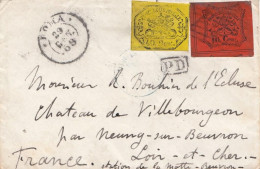 ROMA
68
PD
Monsieur R. Bouhin de l'Ecluse
Chateau de Villebourgeon
par Neung-sur-Beuvron
Loir-et-Cher-
France.
station de la Motte-Beuvron-